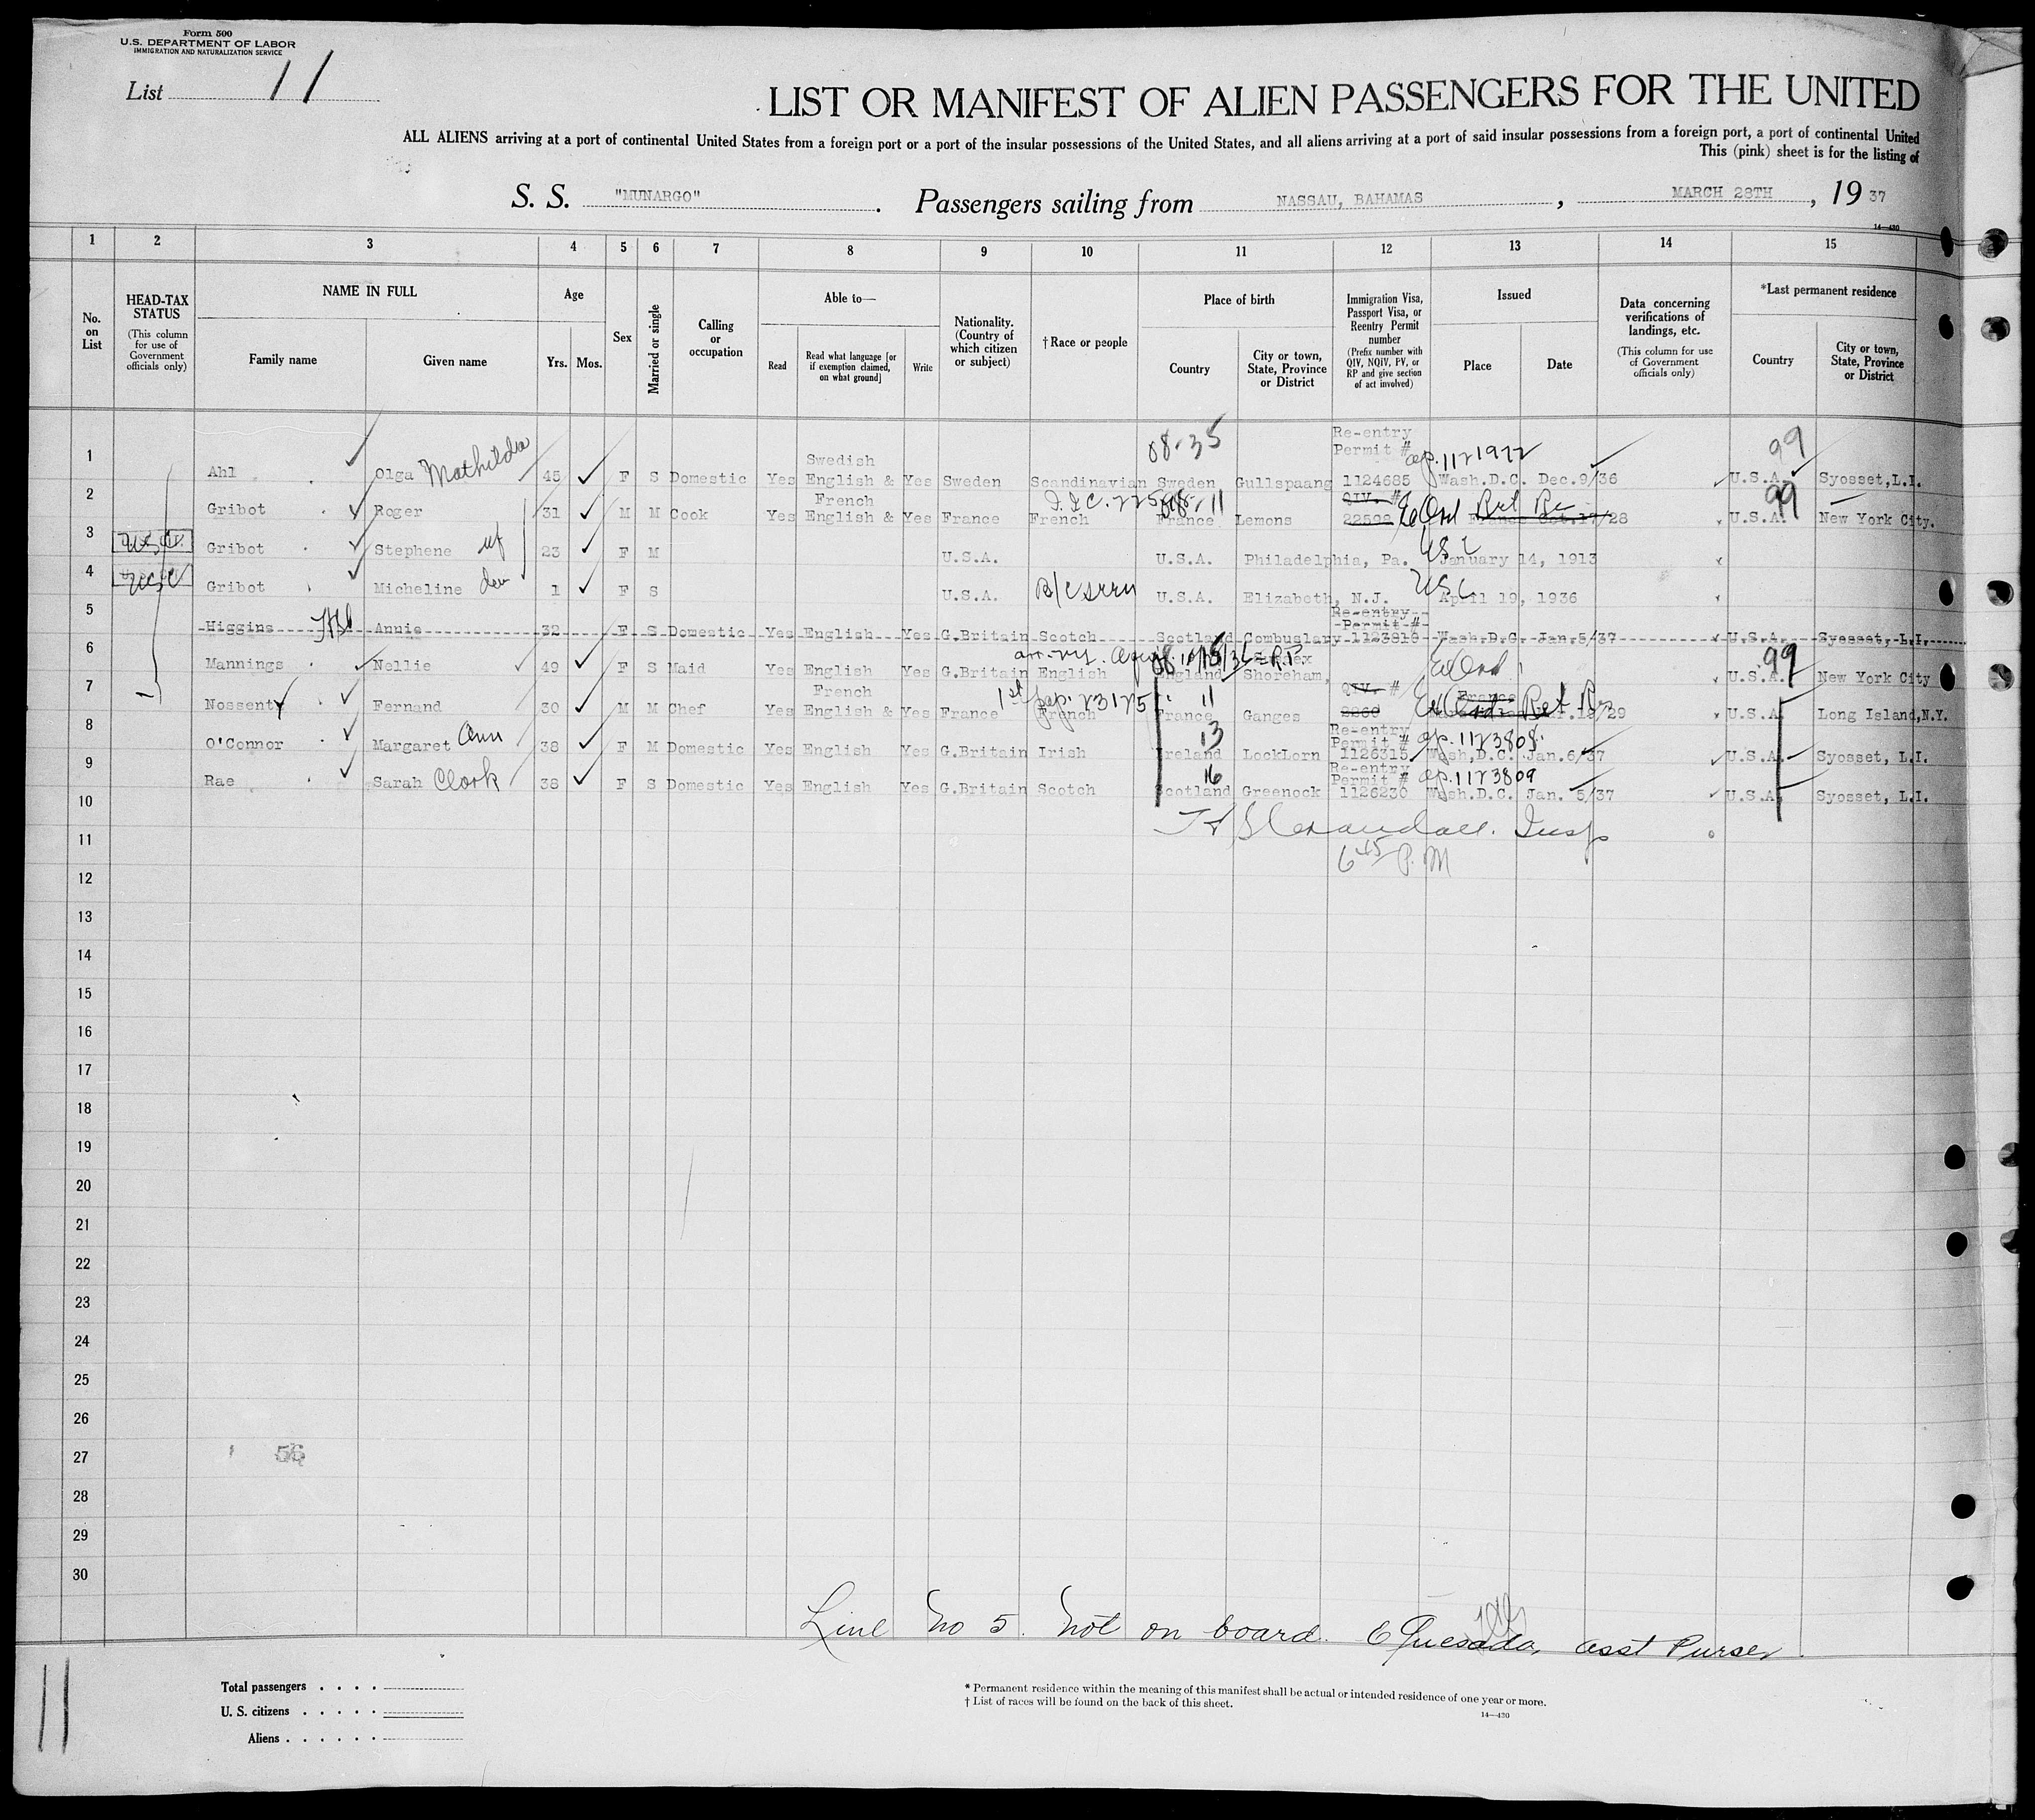 Form 500
U.S. DEPARTMENT OF LABOR
IMMIGRATION AND NATURALIZATION SERVICE
List 11
LIST OR MANIFEST OF ALIEN PASSENGERS FOR THE UNITED
ALL ALIENS arriving at a port of continental United States from a foreign port or a port of the insular possessions of the United States, and all aliens arriving at a port of said insular possessions from a foreign port, a port of continental United
This (pink) sheet is for the listing of
S. S. "MUNARGO" . Passengers sailing from NASSAU, BAHAMAS , MARCH 28TH , 19 37
14—430
1 2 3 4 5 6 7 8 9 10 11 12 13 14 15
No. on List
HEAD-TAX STATUS
(This column for use of Government officials only)
NAME IN FULL
Family name
Given name
Age
Yrs.
Mos.
Sex
Married or single
Calling or occupation
Able to—
Read
Read what language [or if exemption claimed, on what ground]
Write
Nationality. (Country of which citizen or subject)
† Race or people
Place of birth
Country
City or town, State, Province or District
Immigration Visa, Passport Visa, or Reentry Permit number
(Prefix number with QIV, NQIV, PV, or RP and give section of act involved)
Issued
Place
Date
Data concerning verifications of landings, etc.
(This column for use of Government officials only)
*Last permanent residence
Country
City or town, State, Province or District
08-35 Re-entry Permit # ap. 1121972 99
1 Ahl Olga Mathilda 45 F S Domestic Yes Swedish English & Yes Sweden Scandinavian Sweden Gullspaang 1124685 Wash.D.C. Dec.9/36 U.S.A. Syosset,L.I.
2 Gribot Roger 31 M M Cook Yes French English & Yes France French France Lemons QIV. # 22598 /28 U.S.A. 99 New York City.
3 Gribot Stephene wf 23 F M U.S.A. U.S.A. Philadelphia, Pa. USC January 14, 1913
4 USC Gribot Micheline dau 1 F S U.S.A. B/C U.S.A. Elizabeth, N.J. USC April 19, 1936
5 Higgins Annie 32 F S Domestic Yes English Yes G.Britain Scotch Scotland Combuslary Re-entry Permit # 1123810 Wash.D.C. Jan.5/37 U.S.A. Syosset, L.I.
6 Mannings Nellie 49 F S Maid Yes English Yes G.Britain English England Shoreham, U.S.A. 99 New York City
7 Nossenty Fernand 30 M M Chef Yes French English & Yes France 1st pap. 23125 French France 11 Ganges QIV. # /29 U.S.A. Long Island,N.Y.
8 O'Connor Margaret Ann 38 F M Domestic Yes English Yes G.Britain Irish 13 Ireland LockLorn Re-entry Permit # ap. 1123808 1126315 Wash,D.C. Jan.6/37 U.S.A. Syosset, L.I.
9 Rae Sarah Clark 38 F S Domestic Yes English Yes G.Britain Scotch 16 Scotland Greenock Re-entry Permit # ap. 1123809 1126230 Wash.D.C. Jan. 5/37 U.S.A. Syosset, L.I.
10
11
6 45 P.M
12
13
14
15
16
17
18
19
20
21
22
23
24
25
26
27 56
28
29
30
Line No 5. Not on board. E Quesada, asst Purser
11
Total passengers . . . .
U. S. citizens . . . . .
Aliens . . . . . .
* Permanent residence within the meaning of this manifest shall be actual or intended residence of one year or more.
† List of races will be found on the back of this sheet.
14—430